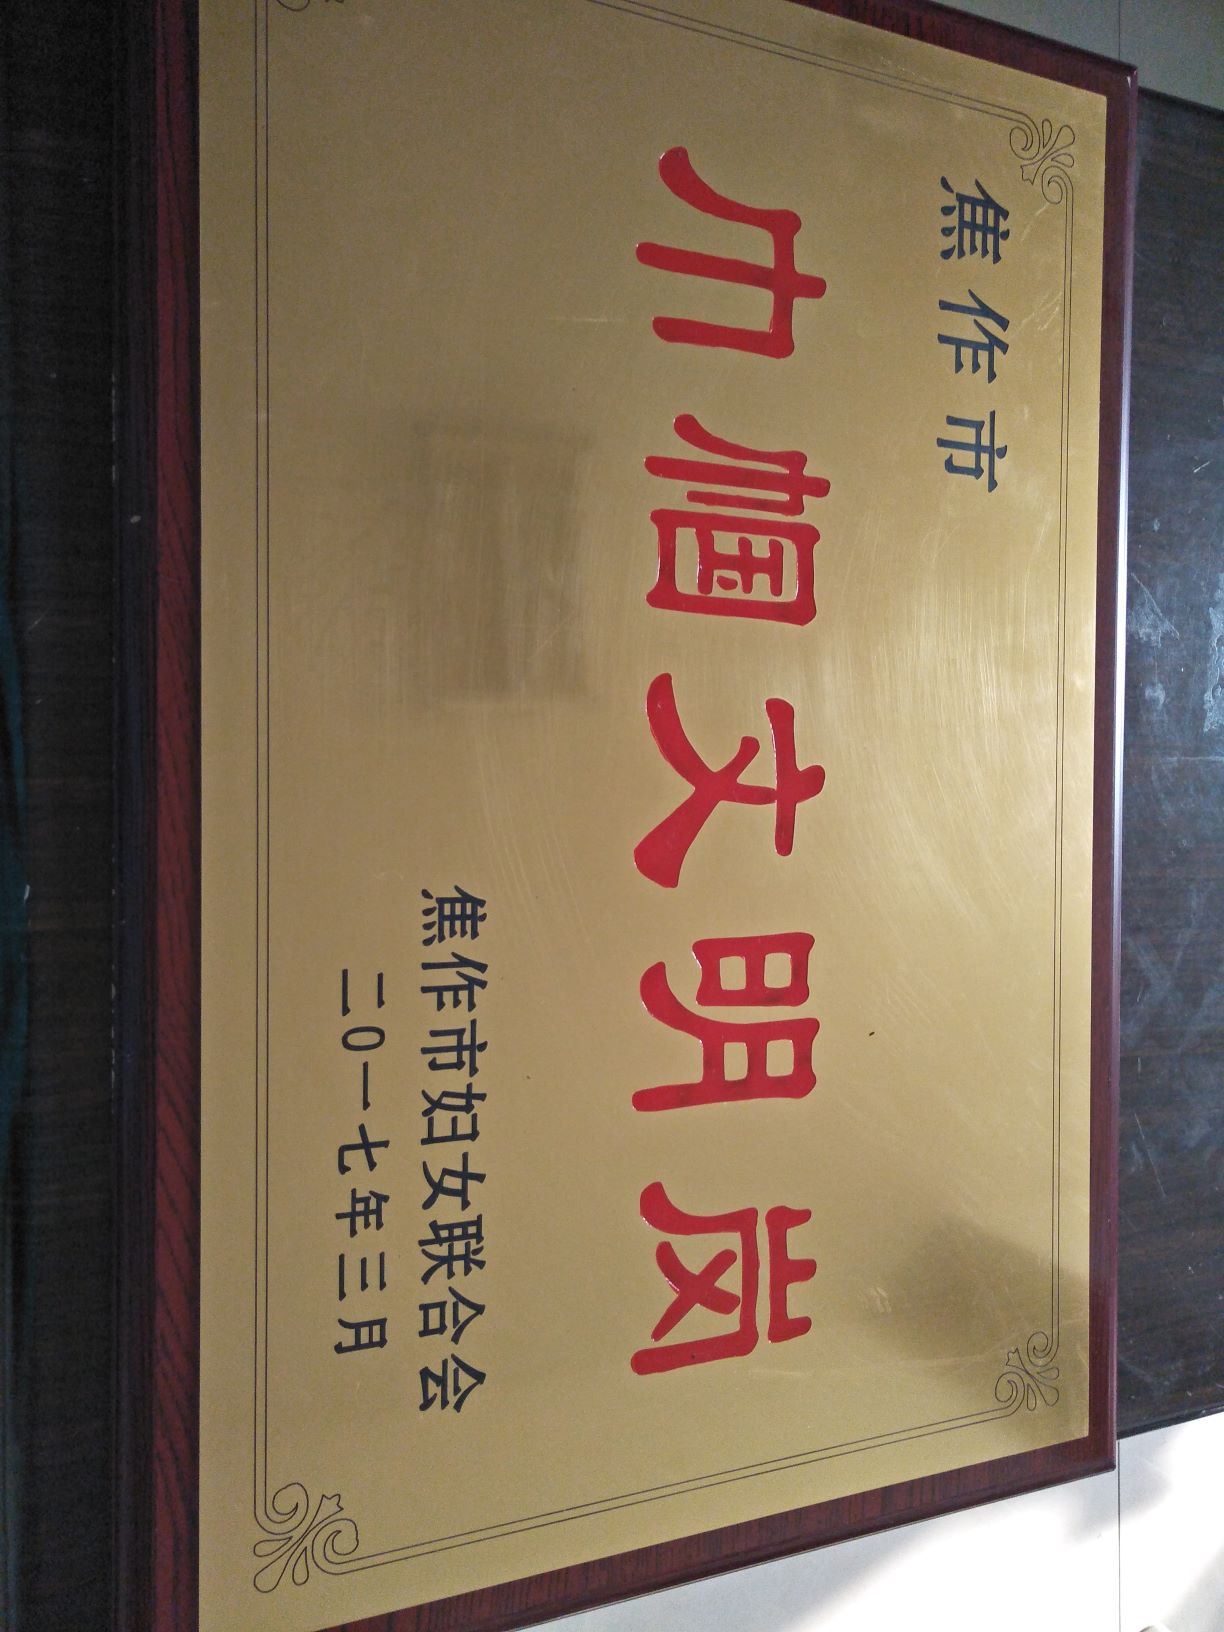 焦作市
巾帼文明岗
焦作市妇女联合会
二0一七年三月